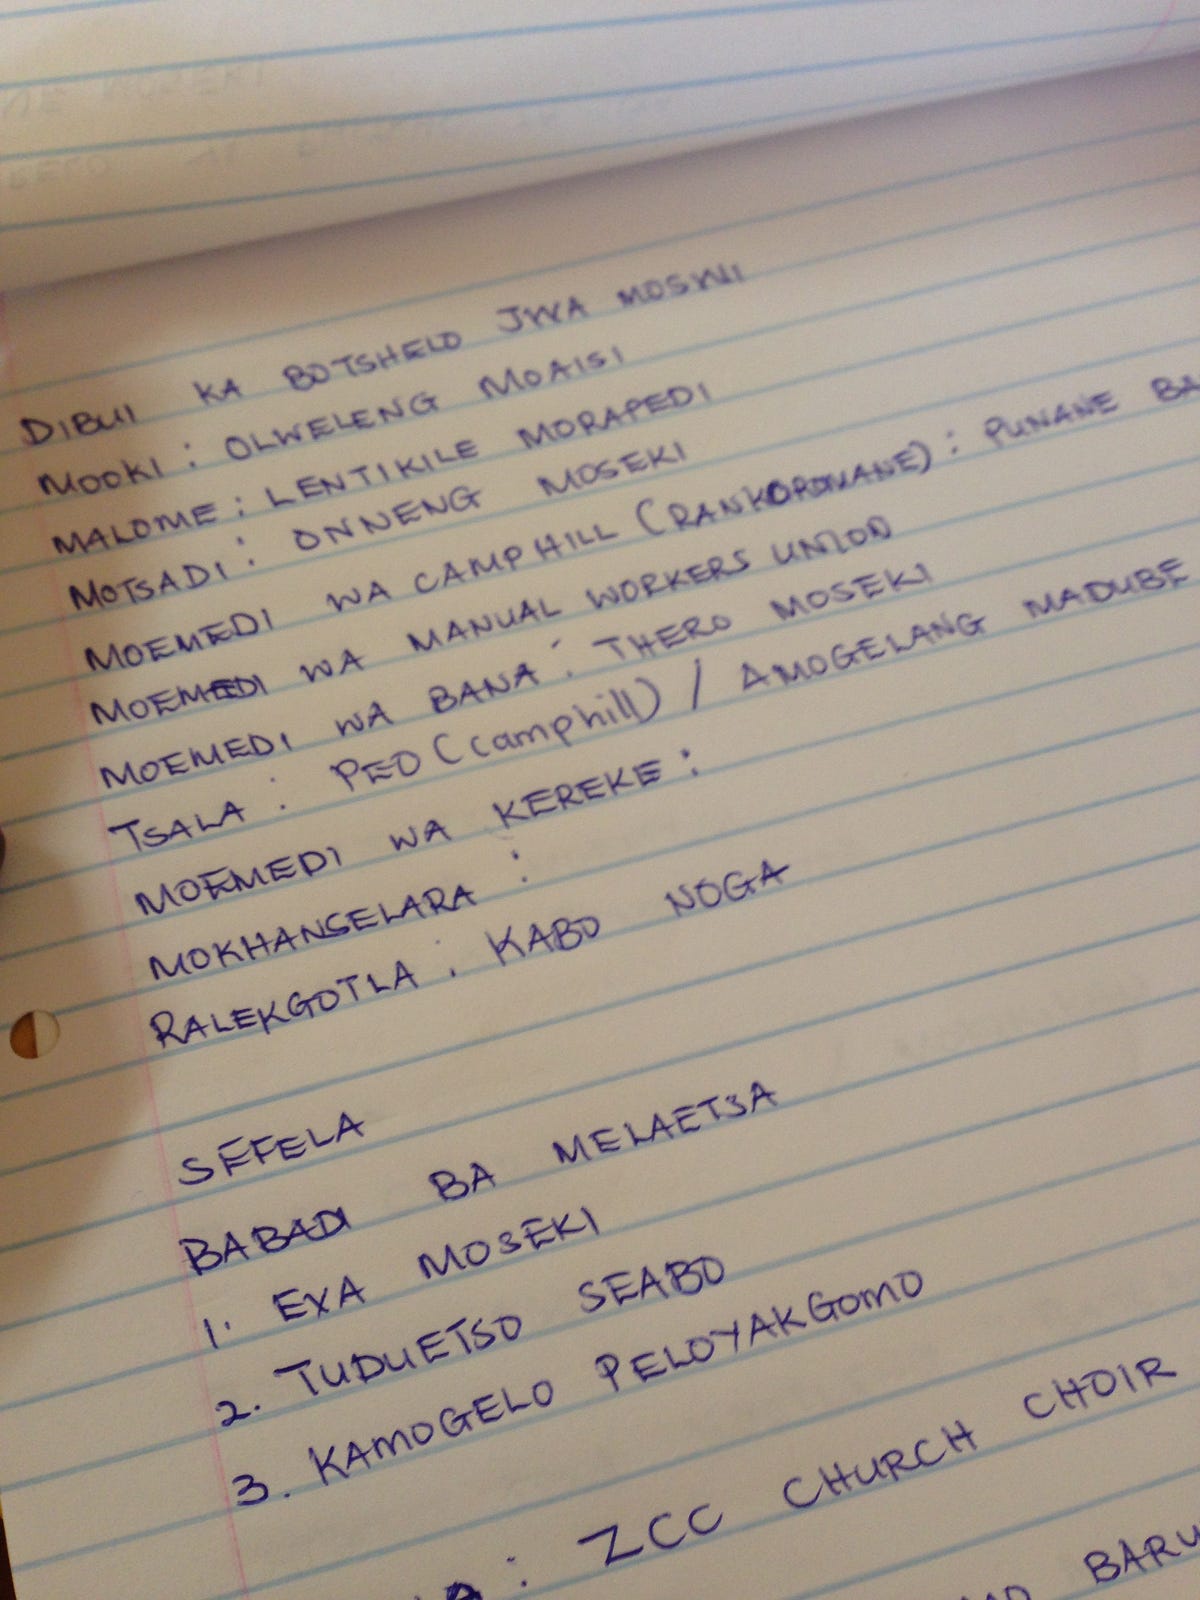 DIBUI KA BOTSHELO JWA MOSWI
MOOKI : OLWELENG MOAISI
MALOME : LENTIKILE MORAPEDI
MOTSADI : ONNENG MOSEKI
MOEMEDI WA CAMPHILL (RANKOROWANE) : PUNANE BA
MOEMEDI WA MANUAL WORKERS UNION
MOEMEDI WA BANA : THERO MOSEKI
TSALA : PEO (camphill) / AMOGELANG MADUBE
MOEMEDI WA KEREKE :
MOKHANSELARA :
RALEKGOTLA : KABO NOGA
SEFELA
BABADI BA MELAETSA
1. EXA MOSEKI
2. TUDUETSO SEABO
3. KAMOGELO PELOYAKGOMO
: ZCC CHURCH CHOIR
BARU